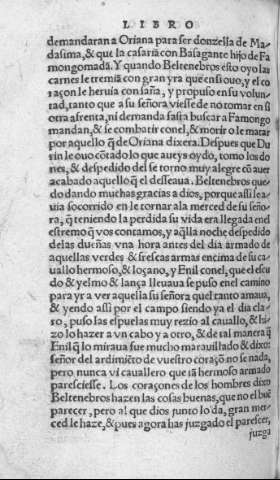 LIBRO
demandaran a Oriana para ser donzella de Ma-
dasima, & que la casariã con Basagante hijo de Fa
mongomada. Y quando Beltenebros esto oyo las
carnes le tremiã con gran yra que en si ouo, y el co
raçon le heruia con saña, y propuso en su volun-
tad, tanto que a su señora viesse de no tomar en si
otra afrenta, ni demanda fasta buscar a Famongo
mandan, & se combatir conel, & morir o le matar
por aquello q̃ de Oriana dixera. Despues que Du
rin le ouo cõtado lo que aueys oydo, tomo los do
nes, & despedido del se torno muy alegre cõ auer
acabado aquello q̃ el desseaua. Beltenebros que
do dando muchas gracias a dios, porque assi le a-
uia socorrido en le tornar ala merced de su seño-
ra, q̃ teniendo la perdida su vida era llegada enel
estremo q̃ vos contamos, y aq̃lla noche despedido
delas dueñas vna hora antes del dia armado de
aquellas verdes & frescas armas encima de su ca-
uallo hermoso, & loçano, y Enil conel, que el escu
do & yelmo & lança lleuaua se puso enel camino
para yr a ver aquella su señora quel tanto amaua,
& yendo assi por el campo siendo ya el dia cla-
ro, puso las espuelas muy rezio al cauallo, & hi-
zo lo hazer a vn cabo y a otro, & de tal manera q̃
Enil q̃ lo miraua fue mucho marauillado & dixo:
señor del ardimiẽto de vuestro coraçõ no se nada,
pero nunca vi cauallero que tã hermoso armado
paresciesse. Los coraçones de los hombres dixo
Beltenebros hazen las cosas buenas, que no el buẽ
parecer, pero al que dios junto lo da, gran mer-
ced le haze, & pues agora has juzgado el parescer,
juzga